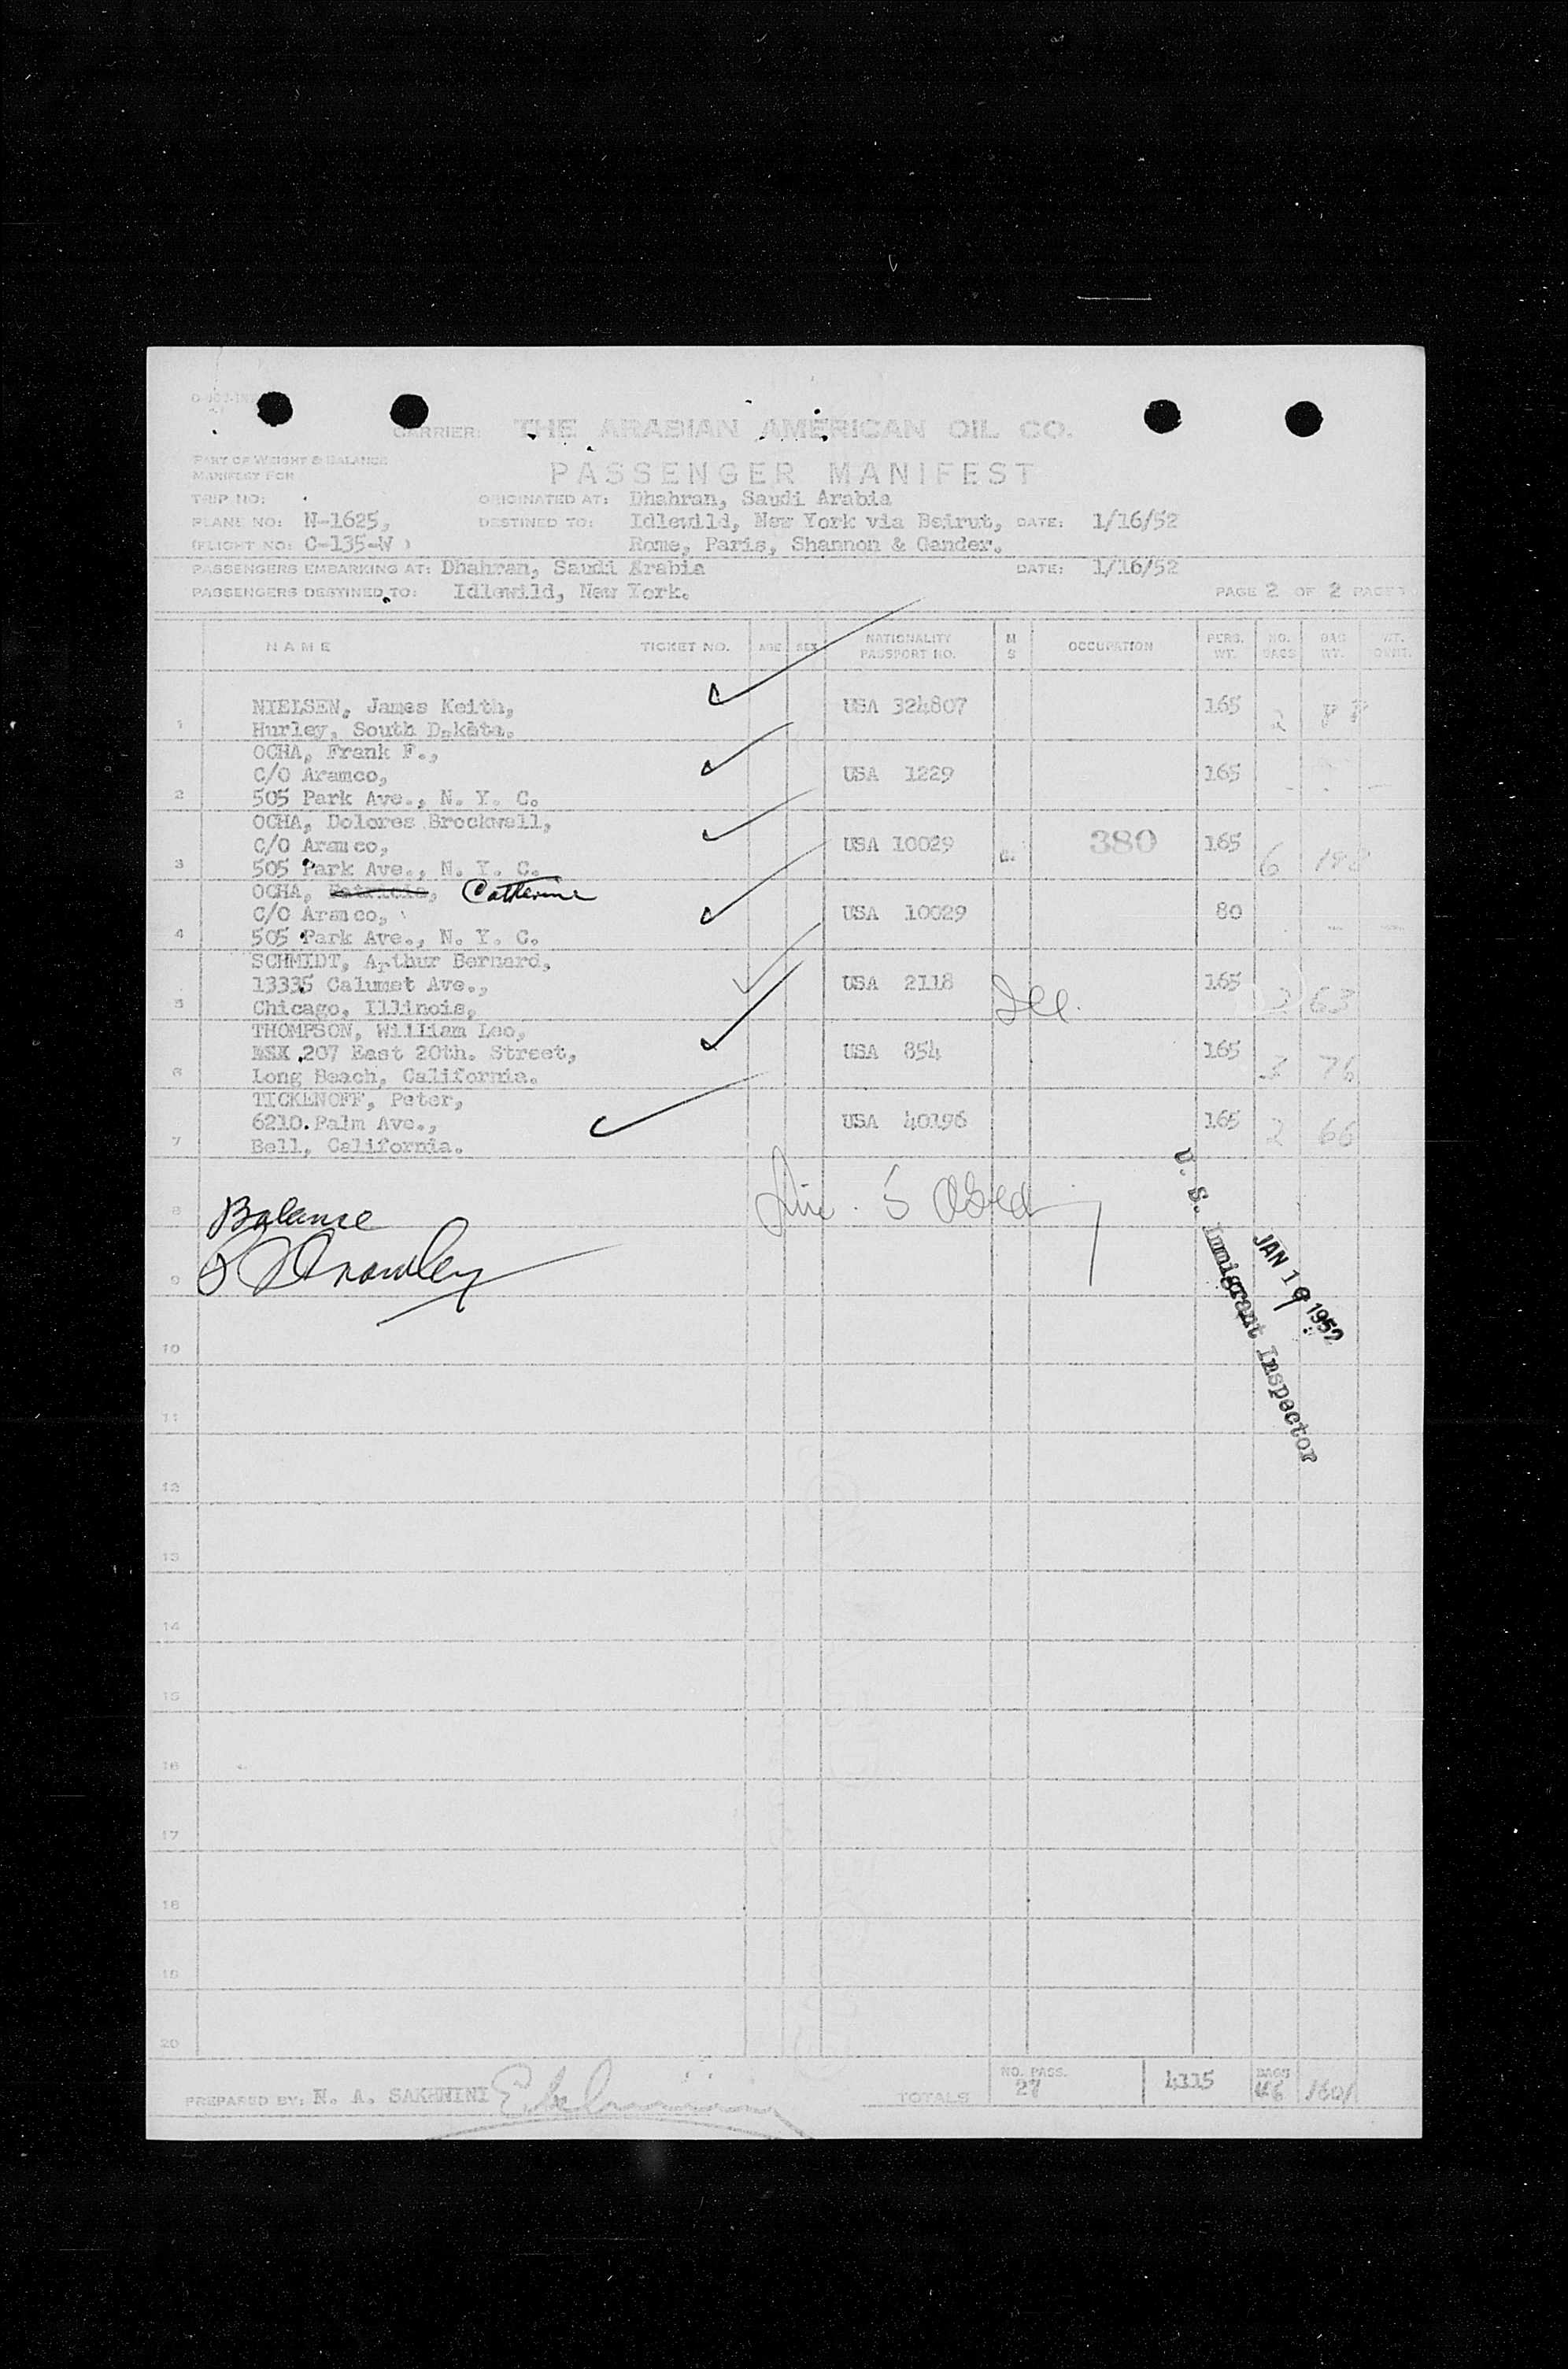 CARRIER: THE ARABIAN AMERICAN OIL CO.
PART OF WEIGHT & BALANCE
MANIFEST FOR
PASSENGER MANIFEST
TRIP NO: ORIGINATED AT: Dhahran, Saudi Arabia
PLANE NO: N-1625, DESTINED TO: Idlewild, New York via Beirut, DATE: 1/16/52
(FLIGHT NO: C-135-W ) Rome, Paris, Shannon & Gander.
PASSENGERS EMBARKING AT: Dhahran, Saudi Arabia DATE: 1/16/52
PASSENGERS DESTINED TO: Idlewild, New York. PAGE 2 OF 2 PAGES
NAME TICKET NO. AGE SEX NATIONALITY PASSPORT NO. M S OCCUPATION PERS. WT. NO. BAGS BAG WT.
NIELSEN, James Keith, USA 324807 165 2
1 Hurley, South Dakota.
OCHA, Frank F.,
C/O Aramco, USA 1229 165
2 505 Park Ave., N. Y. C.
OCHA, Dolores Brockwell,
C/O Aramco, USA 10029 380 165 6
3 505 Park Ave., N. Y. C.
OCHA, Patricia, Catherine
C/O Aramco, USA 10029 80
4 505 Park Ave., N. Y. C.
SCHMIDT, Arthur Bernard,
13335 Calumet Ave., USA 2118 165 2 63
5 Chicago, Illinois,
THOMPSON, William Leo,
207 East 20th. Street, USA 854 165 3 76
6 Long Beach, California.
TICKENOFF, Peter,
6210 Palm Ave., USA 40196 165 2 66
7 Bell, California.
8 Balance
9
U. S. Immigrant Inspector
JAN 1 1952
10
11
12
13
14
15
16
17
18
19
20
PREPARED BY: N. A. SAKHNINI TOTALS NO. PASS. 27 4115 BAGS 46 1601